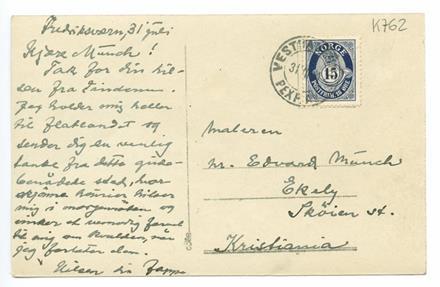 K762
Fredriksværn, 31 juli
Kjære Munch!
Tak for din hil-
sen fra Tinderne.
Jeg holder mig heller
til flatlandet og
sender dig en venlig
tanke fra dette guds-
benådede sted, hvor
skjønne kvinner hilser
mig i morgenstunden og
vinker et
til mig om kvelden, når
jeg forlater dem.
Hilsen din Jappe
VESTH
31
PEXP
NORGE
15
POSTFRIM. 15 ØRE
Maleren
Hr. Edvard Münch
Ekely
Skøien st.
Kristiania